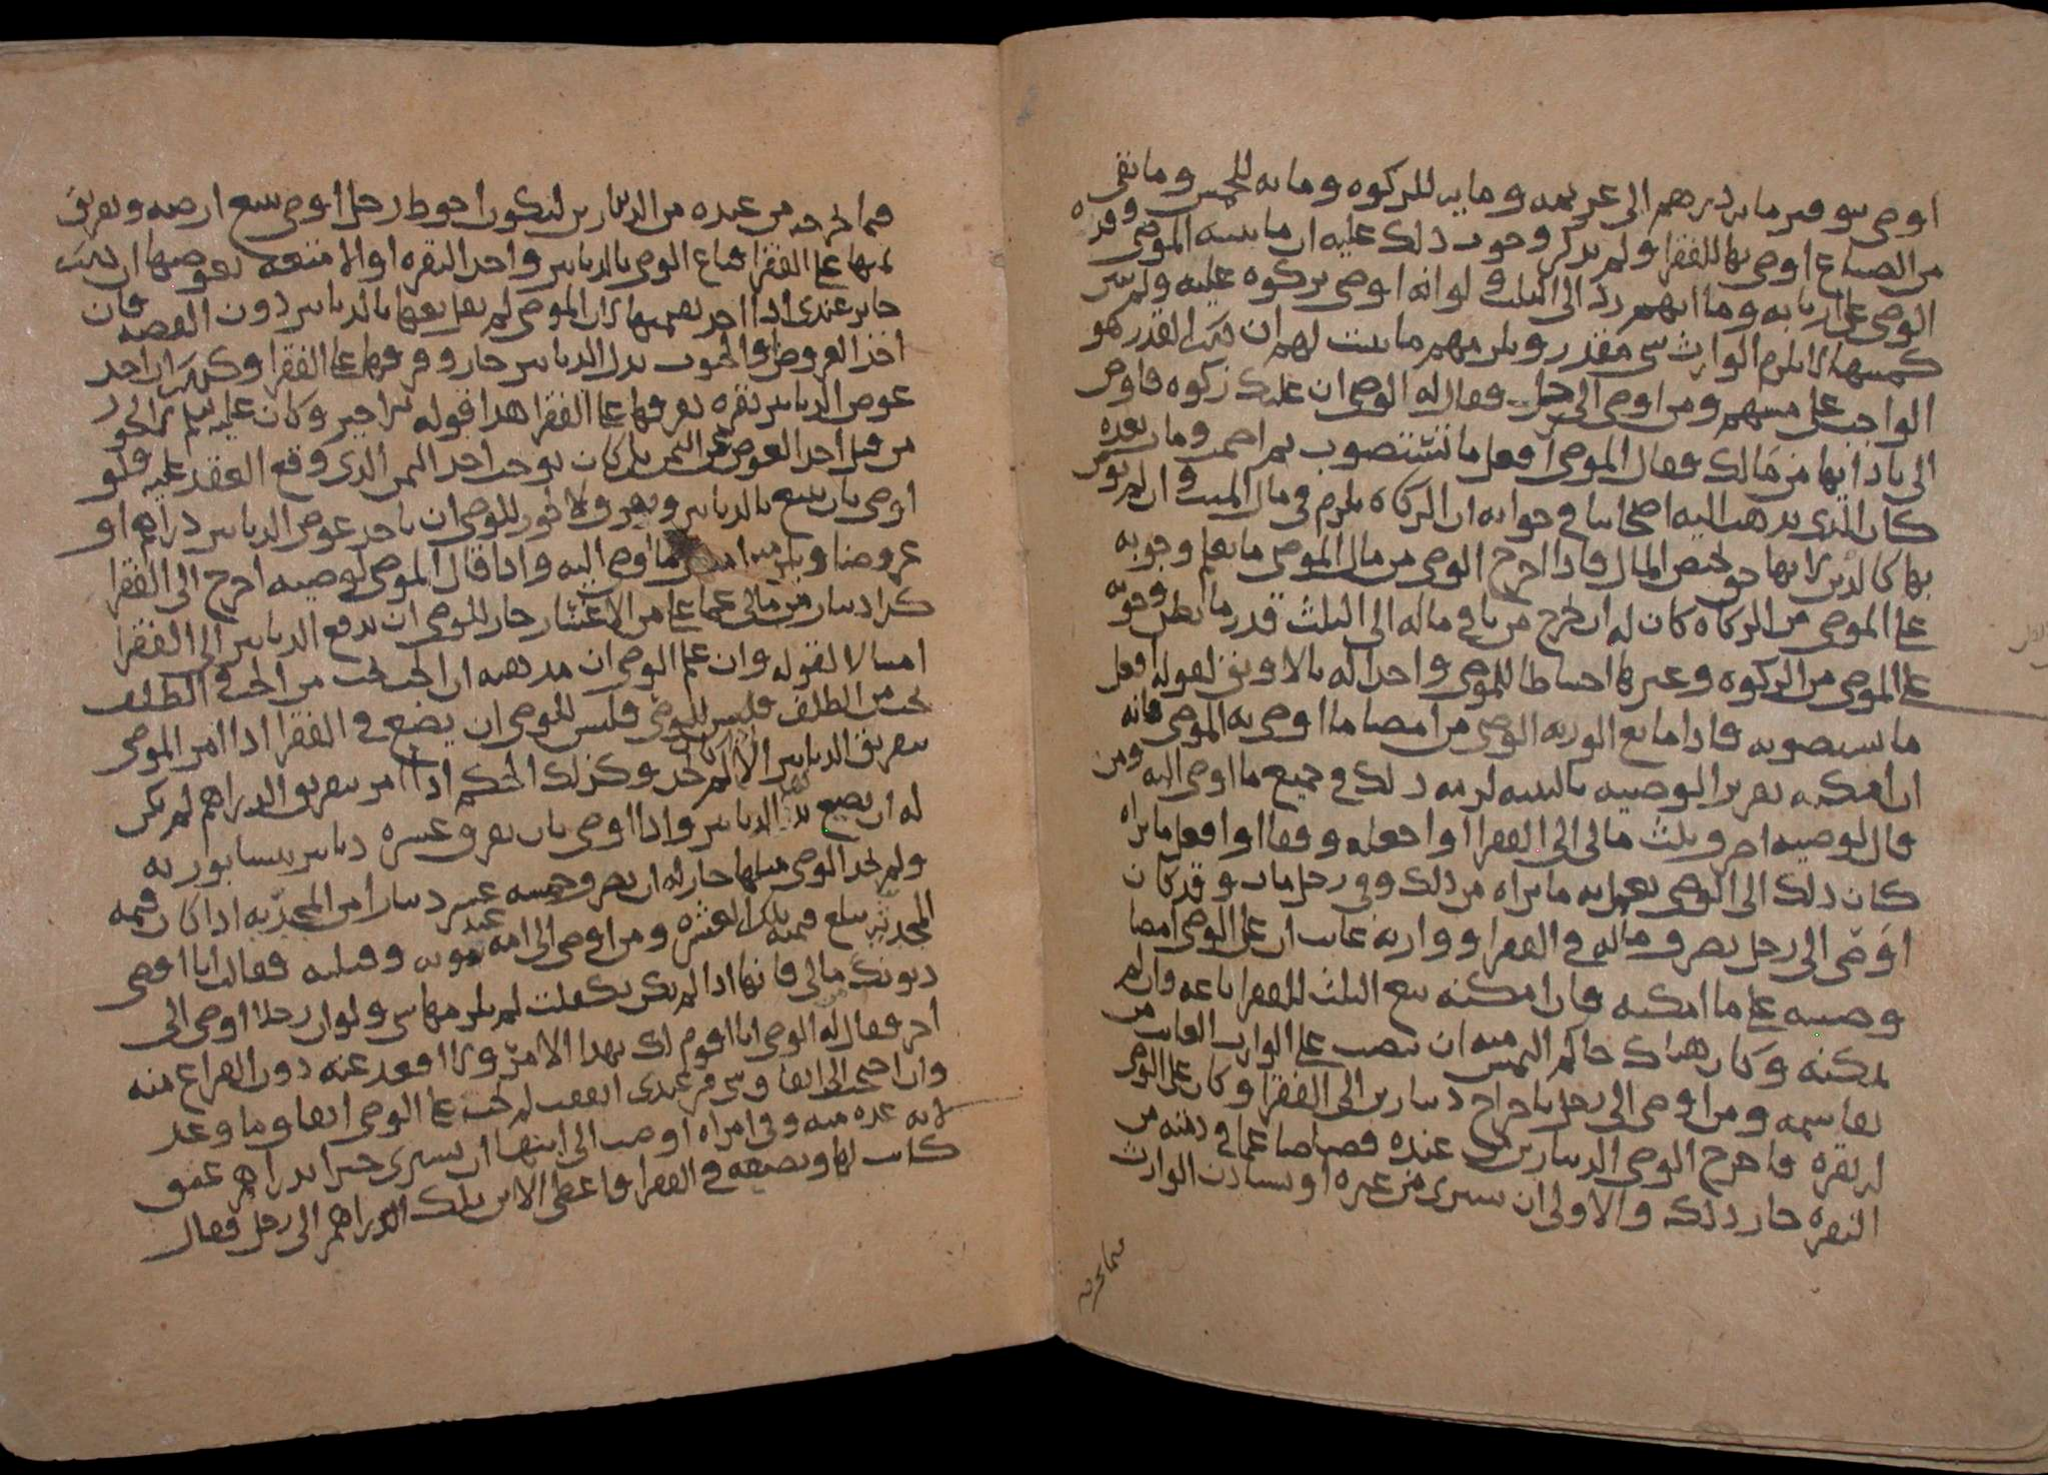 اوصى بتوفير مايه درهم الى غريمه ومايه للزكوه ومايه للخمس وما بقى
من الضياع اوصى بها للفقرا ولم يذكر وجوب ذلك عليه ان ما بينه الموصى وقدره
الوصى على اربابه وما ابهم رد الى الثلث ولو انه اوصى بزكوه عليه ولم يبين
كميتها لا يلزم الوارث شى مقدر ويلزمهم ما يثبت لهم ان ذلك القدر هو
الواجب على ميتهم ومن اوصى الى رجل فقال له الوصى ان عليك زكوه فاوص
الى بادائها من مالك فقال الموصى افعل ما تستصوب ثم اصمت ومات بعده
كان الذى يذهب اليه اصحابنا فى جوابه ان الزكاه يلزم فى مال الميت وان لم يوص
بها كالدين لانها حق يخص المال فاذا اخرج الوصى من مال الموصى ما يعلم وجوبه
على الموصى من الزكاه كان له ان يخرج من باقى ماله الى الثلث قدر ما يظن وجوبه
على الموصى من الزكوه وغيرها احتياطا للموصى واخذا له بالاوثق لقوله افعل
ما تستصوبه فاذا مانع الورثه الوصى من امضا ما اوصى به الموصى فانه
ان امكنه تقرير الوصيه بالبينه لزمه ذلك فى جميع ما اوصى اليه ومن
قال لوصيه اصرف ثلث مالى الى الفقرا او اجعله وقفا او افعل ما تراه
كان ذلك الى الوصى يعمل به ما يراه من ذلك وفى رجل مات وقد كان
اوصى الى رجل بصرف ماله فى الفقرا ووارثه غايب ان على الوصى امضا
وصيته على ما امكنه فان امكنه بيع الثلث للفقرا باعه فان لم
يمكنه وكان هناك حاكم التمس منه ان ينصب على الوارث الغايب من
يقاسمه ومن اوصى الى رجل باخراج دينارين الى الفقرا وكان على الوصى
له نقره فاخرج الوصى الدينارين من عنده قصاصا عما فى ذمته من
النقره جاز ذلك والاولى ان يشترى من غيره او يستاذن الوارث
فيما يخرجه
فيما اخرجه من عنده من الدينارين ليكون احوط رجل اوصى ببيع ارضه وتفريق
ثمنها على الفقرا فباع الوصى بالدنانير واخذ النقره او الامتعه بعوضها ان ذلك
جايز عندى اذا اخذ بقيمتها لان الموصى لم يقل بعها بالدنانير دون الفضه فان
اخذ العروض والحبوب بدل الدنانير جاز وفرقها على الفقرا وكذلك ان اخذ
عوض الدنانير نقره يفرقها على الفقرا هذا قوله
من قبل اخذ العوض عن الثمن بل كان يوخذ الثمن الذى وقع العقد عليه فلو
اوصى بان يبيع بالدنانير ويفرق لا يجوز للوصى ان ياخذ عوض الدنانير دراهم او
عروضا ويلزمه ما اوصى اليه واذا قال الموصى لوصيه اخرج الى الفقرا
كذا دينار من مالى عما على من الاعشار جاز للوصى ان يدفع الدنانير الى الفقرا
امتثالا لقوله وان علم الوصى ان مذهبه ان الحب يجب من الحب والظلف
يجب من الظلف فليس للوصى فليس للوصى ان يضع فى الفقرا اذا امر الموصى
بتفريق الدنانير الا وكذلك الحكم اذا امر بتفريق الدراهم لم يكن
له ان يضيع الدنانير واذا اوصى بان يفرق عشره دنانير نيسابوريه
ولم يجد الوصى مثلها جاز له ان يصرف خمسه عشر دينارا من المجديه اذا كان قيمه
المجديه تبلغ قيمه تلك العشره ومن اوصى الى امه عند موته وقيل له فقالت انا اقضى
ديونك مالى فانها اذا لم يكن تكفلت لم يلزمها شى ولو ان رجلا اوصى الى
اخر فقال له الوصى انا اقوم لك بهذا الامر ولا اقعد عنه دون الفراغ منه
وان احتج الى انفاق شى من عندى انفقت لم يجب على الوصى انفاق ما وعد
لانه عده منه وفى امراه اوصت الى ابنها ان يشترى خبزا بدراهم عتق
كانت لها ويضعه فى الفقرا فاعطى الابن تلك الدراهم الى رجل فقال